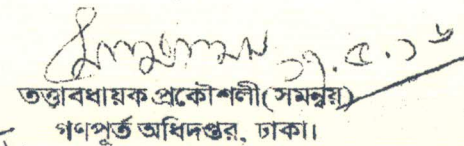 ২৭.৫.১৬
তত্ত্বাবধায়ক প্রকৌশলী(সমন্বয়)
গণপূর্ত অধিদপ্তর, ঢাকা।